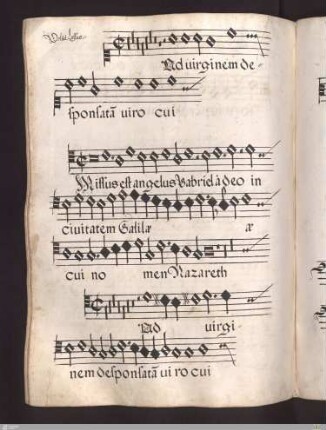 Ad virginem de-
sponsatã uiro cui
Missus est angelus Gabriel à deo in
ciuitatem Galilæ æ
cui no men Nazareth
Ad uirgi-
nem desponsatã ui ro cui